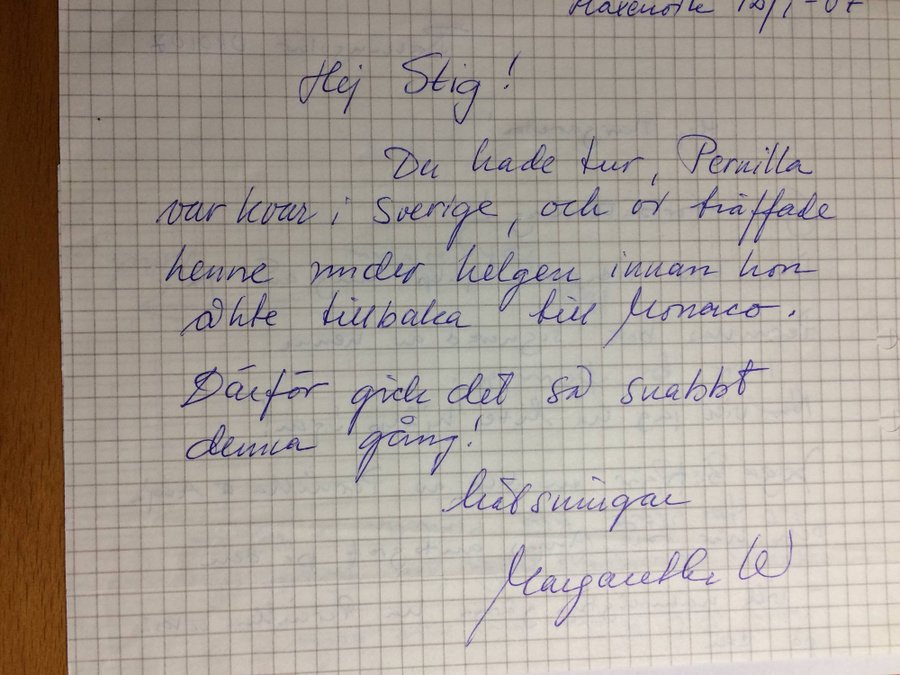 Hej Stig!
Du hade tur, Pernilla
var kvar i Sverige, och vi träffade
henne under helgen innan hon
åkte tillbaka till Monaco.
Därför gick det så snabbt
denna gång!
hälsningar
Margaretha W